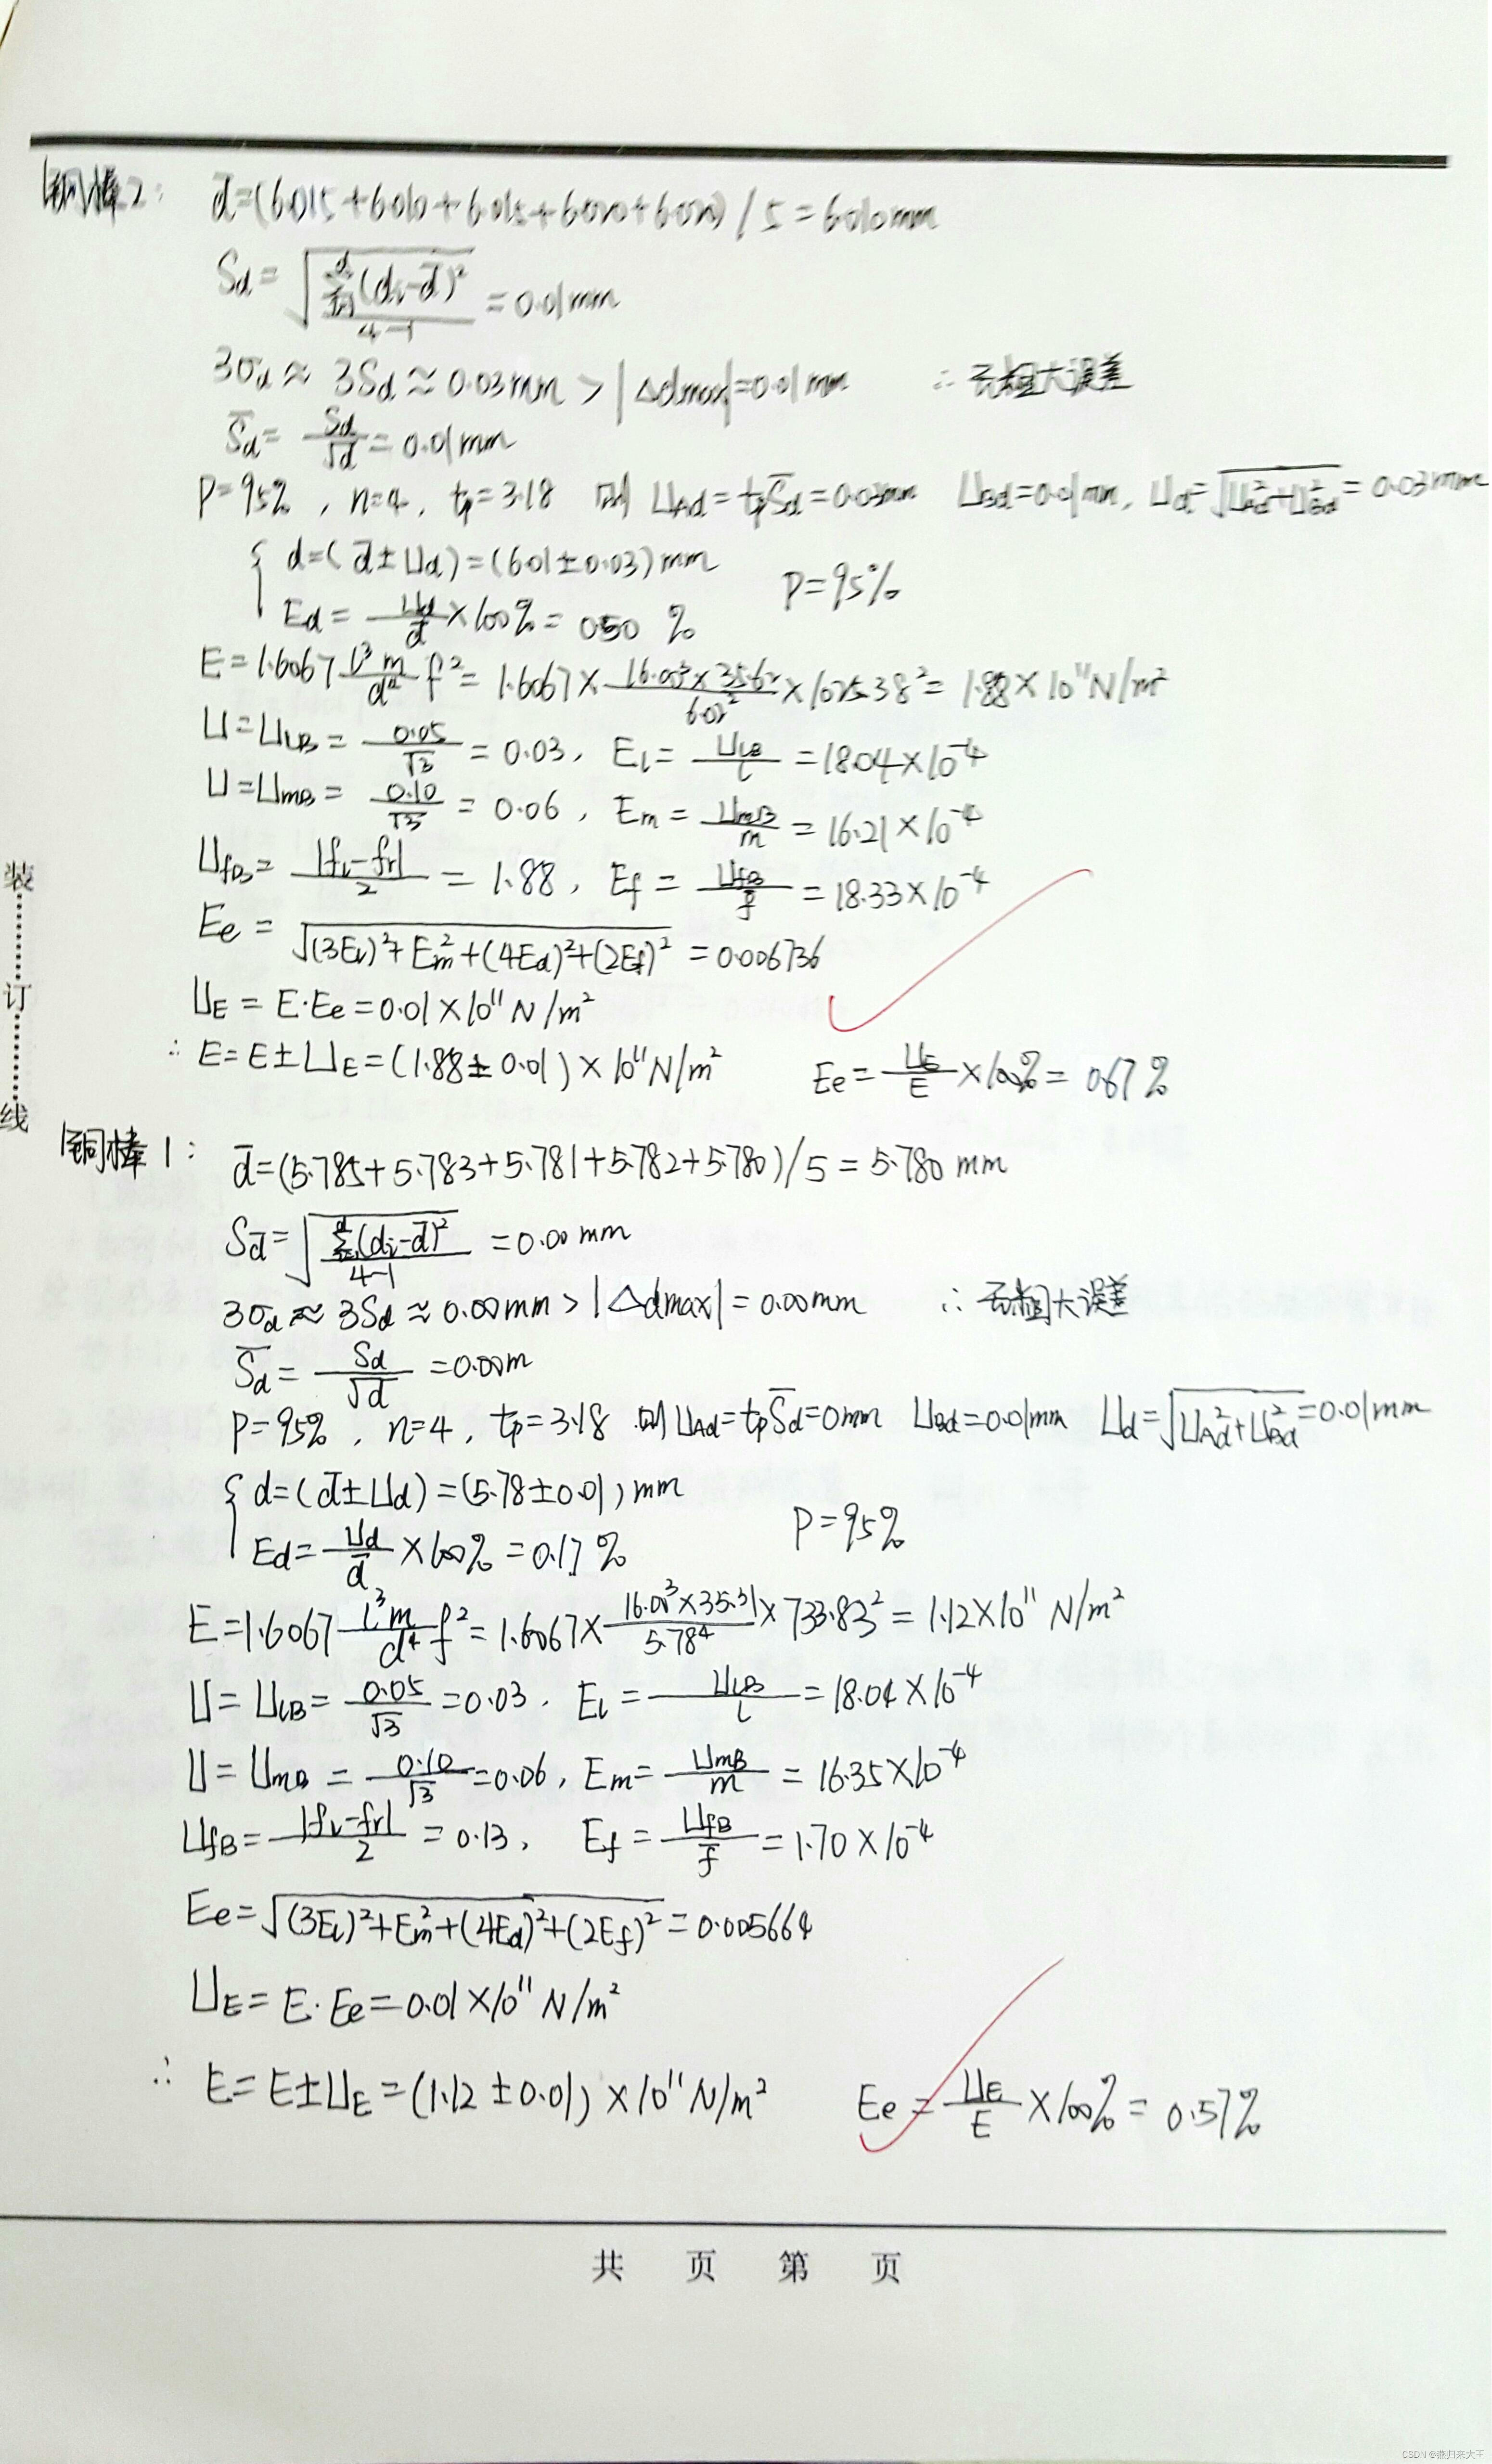 铜棒2: d̄=(6.015+6.010+6.015+6.020+6.020)/5=6.010mm
Sd=√(Σ(di-d̄)²/4-1)=0.01mm
3σd≈3Sd≈0.03mm>|Δdmax|=0.01mm ∴无粗大误差
S̄d=Sd/√d=0.01mm
P=95%, n=4, tp=3.18 则 UAd=tpS̄d=0.03mm UBd=0.01mm, Ud=√(UAd²+UBd²)=0.03mm
{ d=(d̄±Ud)=(6.01±0.03)mm
Ed=Ud/d̄×100%=0.50 % P=95%
E=1.6067 l³m/d⁴ f²=1.6067×16.00³×35.62/6.02²×1025.38²=1.88×10¹¹N/m²
U=UlB=0.05/√3=0.03, El=UlB/l=18.04×10⁻⁴
U=UmB=0.10/√3=0.06, Em=UmB/m=16.21×10⁻⁴
UfB=|fl-fr|/2=1.88, Ef=UfB/f̄=18.33×10⁻⁴
Ee=√((3El)²+Em²+(4Ed)²+(2Ef)²)=0.006736
UE=E·Ee=0.01×10¹¹N/m²
∴ E=E±UE=(1.88±0.01)×10¹¹N/m² Ee=UE/E×100%=0.67%
铜棒1: d̄=(5.785+5.783+5.781+5.782+5.780)/5=5.780mm
Sd̄=√(Σ(di-d̄)²/4-1)=0.00mm
3σd≈3Sd≈0.00mm>|Δdmax|=0.00mm ∴无粗大误差
S̄d=Sd/√d=0.00m
P=95%, n=4, tp=3.18 则 UAd=tpS̄d=0mm UBd=0.01mm Ud=√(UAd²+UBd²)=0.01mm
{ d=(d̄±Ud)=(5.78±0.01)mm
Ed=Ud/d̄×100%=0.17% P=95%
E=1.6067 l³m/d⁴ f²=1.6067×16.00³×35.31/5.78⁴×733.83²=1.12×10¹¹N/m²
U=UlB=0.05/√3=0.03. El=UlB/l=18.04×10⁻⁴
U=UmB=0.10/√3=0.06, Em=UmB/m=16.35×10⁻⁴
UfB=|fl-fr|/2=0.13, Ef=UfB/f̄=1.70×10⁻⁴
Ee=√((3El)²+Em²+(4Ed)²+(2Ef)²)=0.005664
UE=E·Ee=0.01×10¹¹N/m²
∴ E=E±UE=(1.12±0.01)×10¹¹N/m² Ee=UE/E×100%=0.57%
装
订
线
共 页 第 页
CSDN @燕归来大王